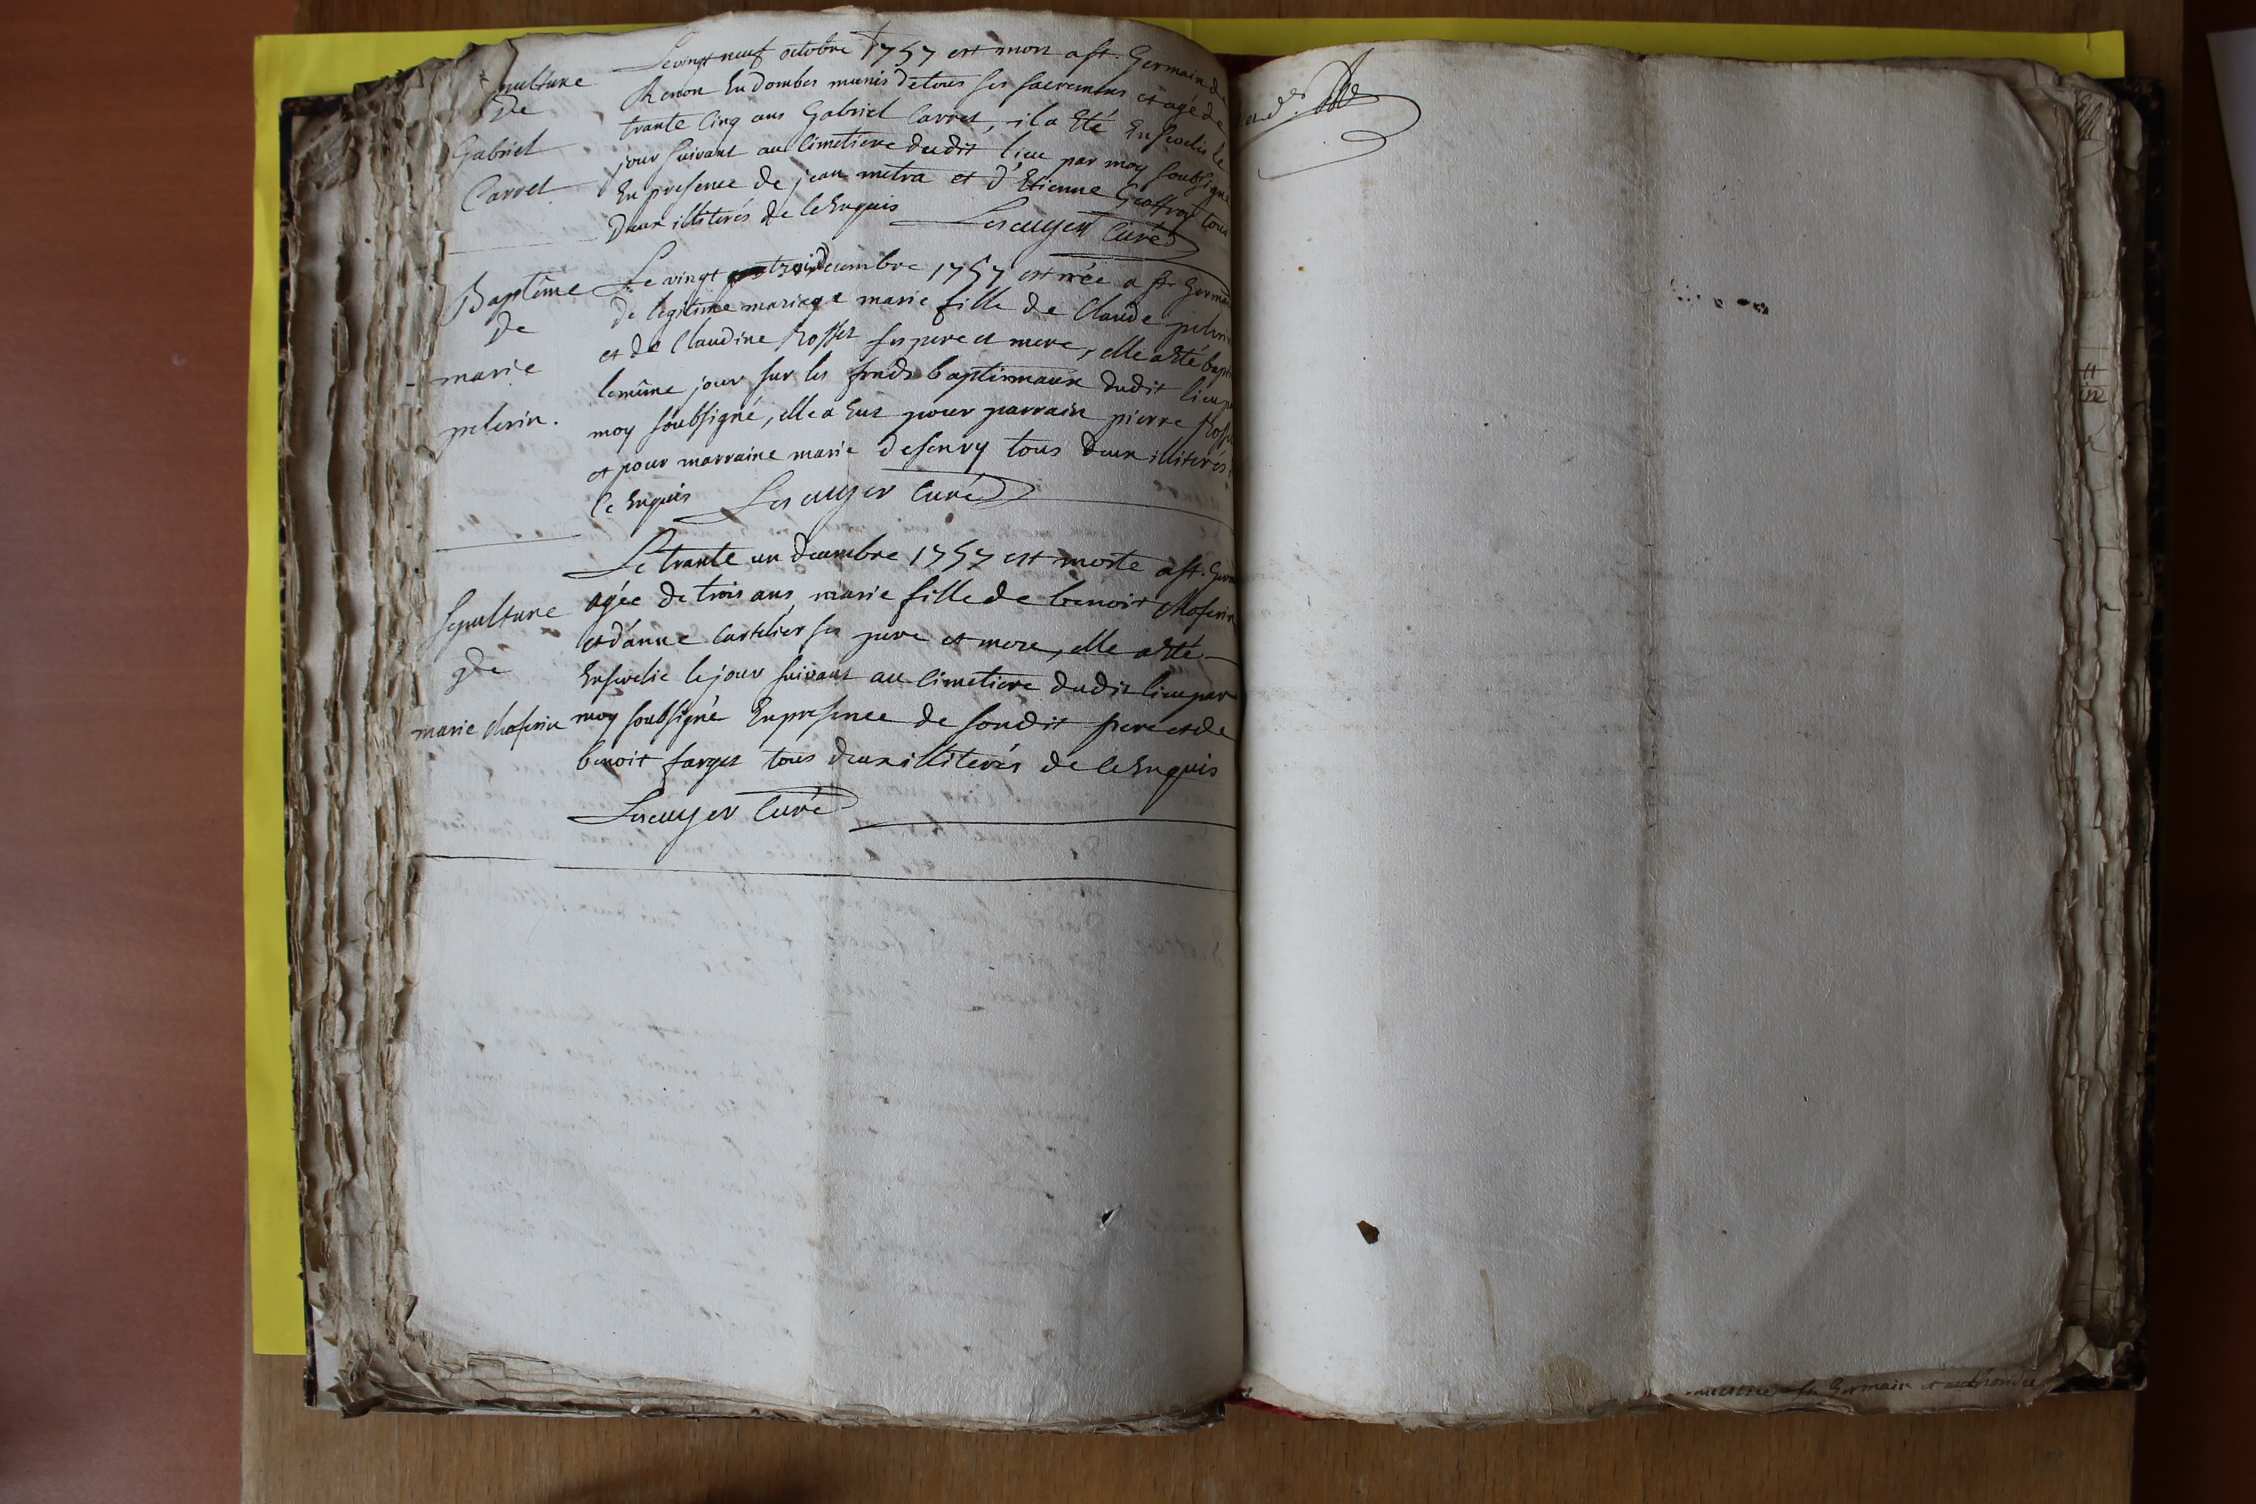 Sepulture
de
Gabriel
Carret
Le vingt neuf octobre 1757 est mort a st. Germain de
Renon En dombes munis de tous ses sacremens et agé de
trante cinq ans Gabriel Carret, il a Eté Enseveli le
jour suivant au Cimetiere dudit lieu par moy soubsigné
En presence de jean metra et d'Etienne Geoffray tous
deux illiterés de ce Enquis curé
Baptême
de
marie
pelerin.
Le vingt trois decembre 1757 est née a st. Germain
de legitime mariage marie fille de Claude pelerin
et de Claudine Rosset ses pere et mere, elle a eté
le même jour sur les fonds baptismaux dudit lieu
moy soubsigné, elle a Eut pour parrain pierre
et pour marraine marie tous deux illiterés
Ce Enquis curé
Sepulture
de
marie
Le trante un decembre 1757 est morte a st.
agée de trois ans marie fille de benoit
et d'anne Cartelier ses pere et mere, elle a eté
Ensevelie le jour suivant au Cimetiere dudit lieu par
moy soubsigné En presence de son dit pere et de
benoit farget tous deux illiterés de ce Enquis
curé
st Germain